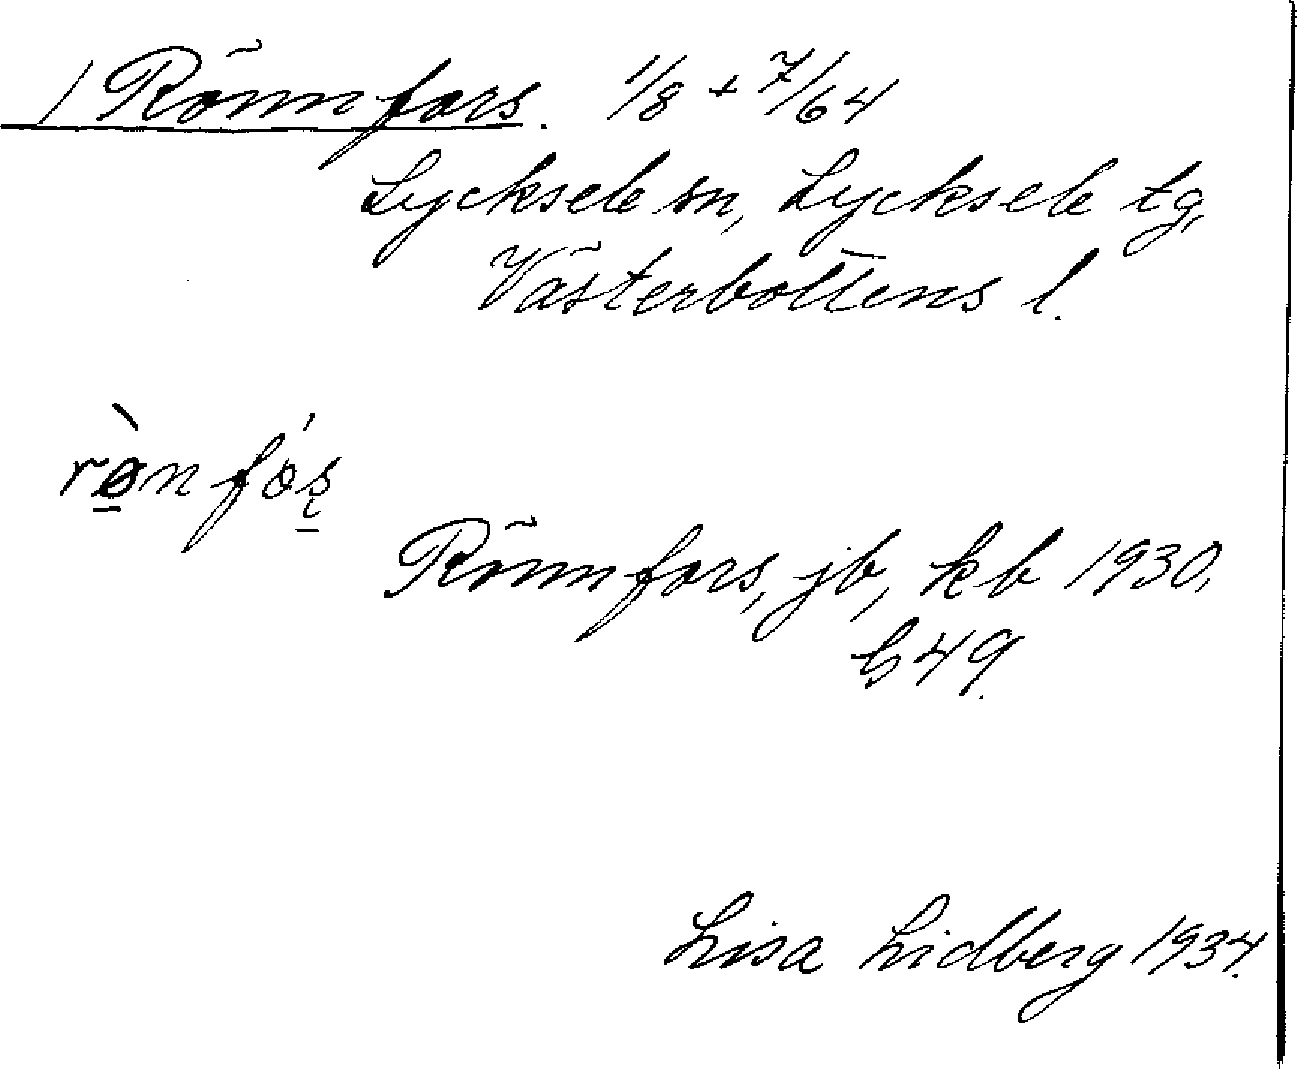 / Rönnfors. 1/8 + 7/64
Lycksele sn, Lycksele tg,
Västerbottens l.
rø̀nfós̨
Rönnfors, jb, kb 1930,
G 49.
Lisa Lidberg 1934.